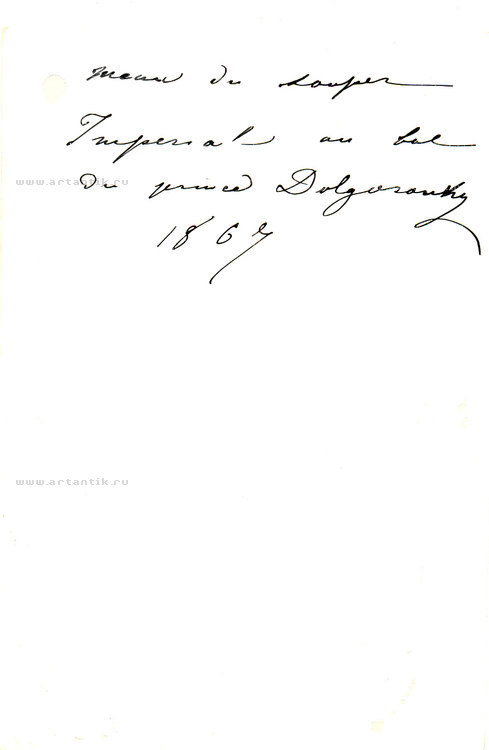 menu du souper
Imperial au bal
www.artantik.ru
du prince Dolgorouky
1867
www.artantik.ru